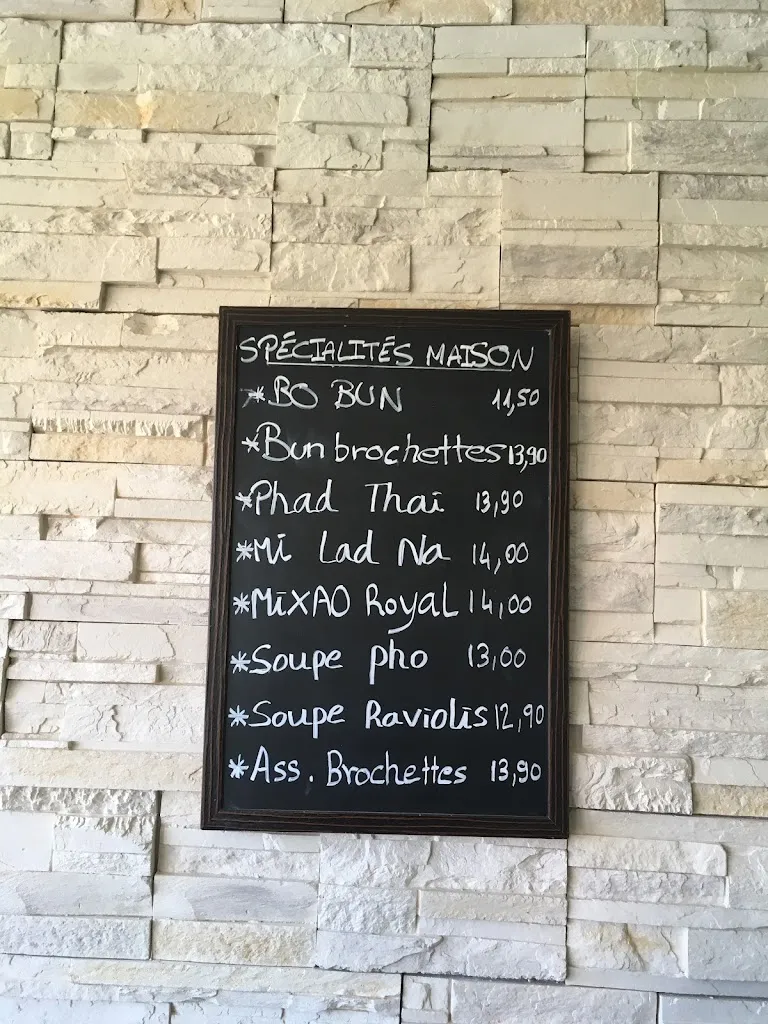 SPÉCIALITÉS MAISON
*BO BUN 11,50
*Bun brochettes 13,90
*Phad Thai 13,90
*Mi Lad Na 14,00
*MiXAO Royal 14,00
*Soupe pho 13,00
*Soupe Raviolis 12,90
*Ass. Brochettes 13,90